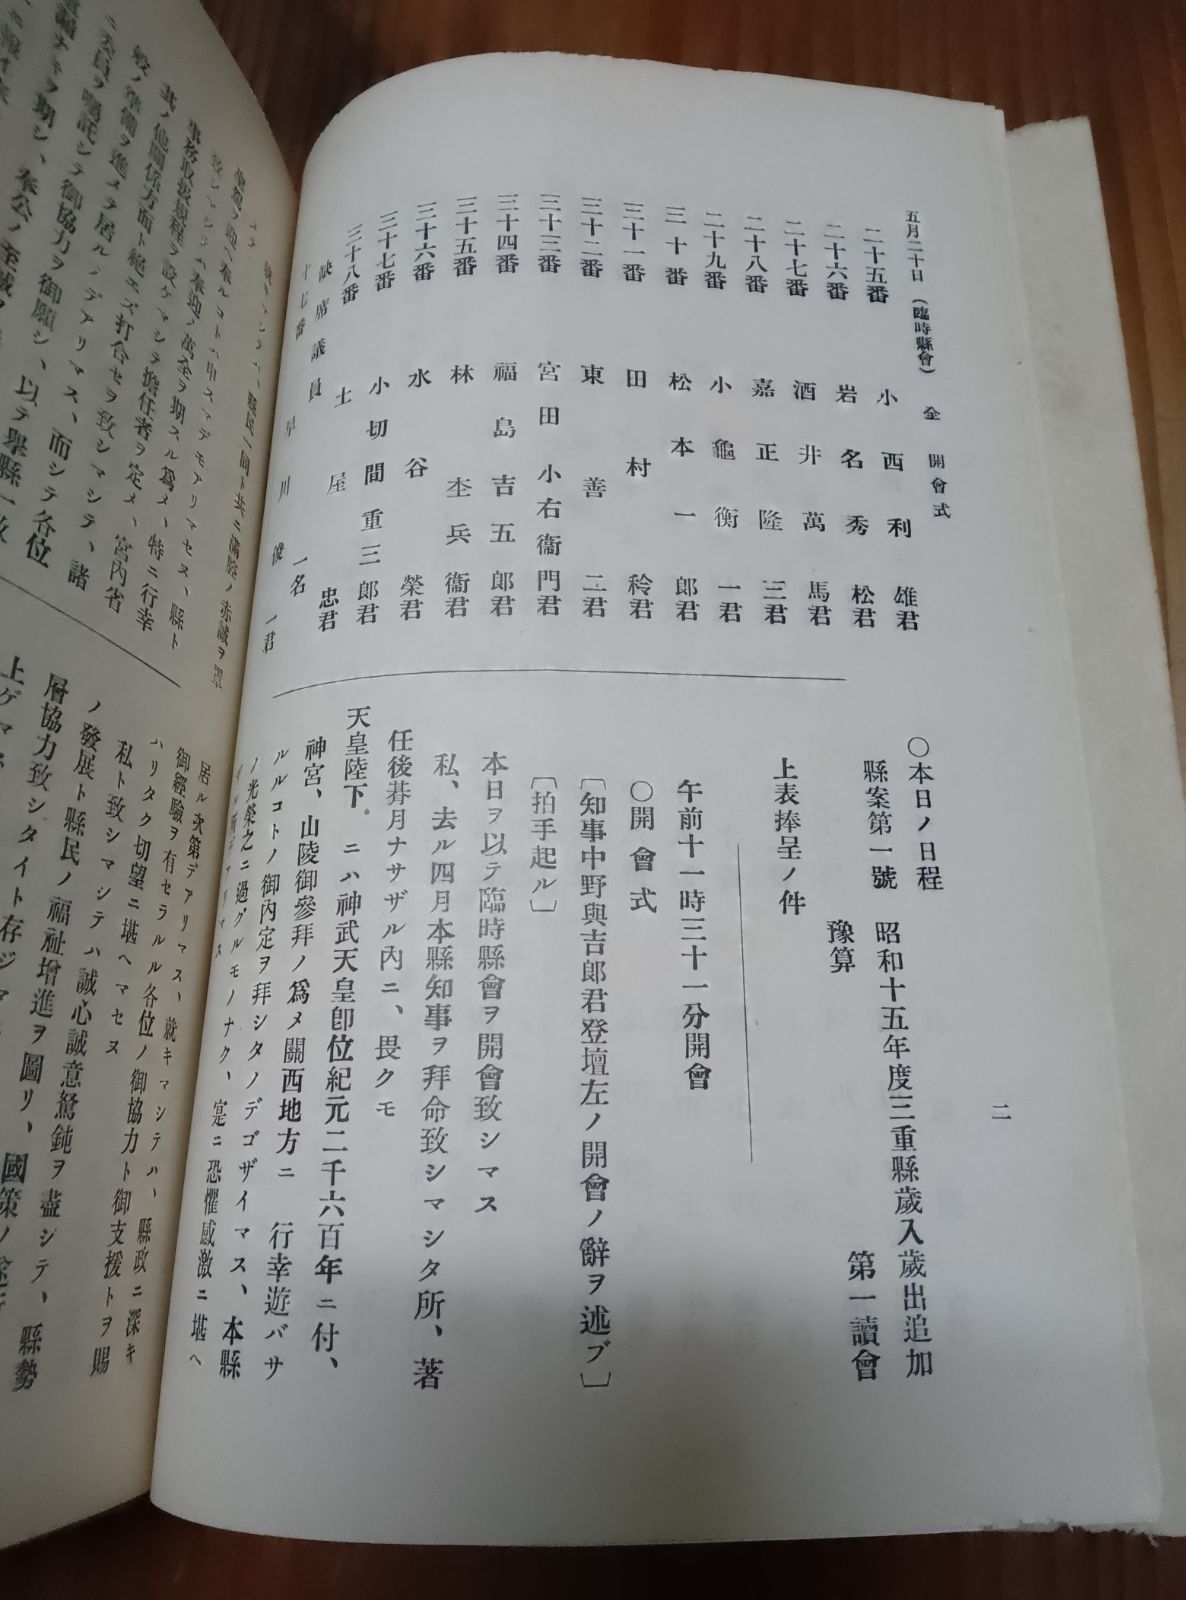 五月二十日 (臨時縣會) 仝 開會式
二
二十五番 小西利雄君
二十六番 岩名秀松君
二十七番 酒井萬馬君
二十八番 嘉正隆三君
二十九番 小龜衡一君
三十番 松本一郎君
三十一番 田村稔君
三十二番 東善二君
三十三番 宮田小右衞門君
三十四番 福島吉五郎君
三十五番 林坴兵衞君
三十六番 水谷榮君
三十七番 小切間重三郎君
三十八番 土屋忠君
缺席議員 一名
十七番 早川俊一君
〇本日ノ日程
縣案第一號 昭和十五年度三重縣歲入歲出追加
豫算 第一讀會
上表捧呈ノ件
午前十一時三十一分開會
〇開會式
〔知事中野與吉郎君登壇左ノ開會ノ辭ヲ述ブ〕
〔拍手起ル〕
本日ヲ以テ臨時縣會ヲ開會致シマス
私、去ル四月本縣知事ヲ拜命致シマシタ所、著
任後朞月ナサザル內ニ、畏クモ
天皇陛下 ニハ神武天皇卽位紀元二千六百年ニ付、
神宮、山陵御參拜ノ爲メ關西地方ニ 行幸遊バサ
ルルコトノ御內定ヲ拜シタノデゴザイマス、本縣
ノ光榮之ニ過グルモノナク、寔ニ恐懼感激ニ堪ヘ
縣民一同ト共ニ滿腔ノ赤誠ヲ
聖駕ヲ迎ヘ奉ルコトハ申スマデモアリマセヌ、縣ト
致シマシテハ奉迎ノ萬全ヲ期スル爲メ、特ニ行幸
事務取扱規程ヲ設ケマシテ擔任者ヲ定メ、宮內省
其ノ他關係方面ト絕エズ打合セヲ致シマシテ、諸
般ノ準備ヲ進メテ居ルノデアリマス、而シテ各位
ニ委員ヲ囑託シテ御協力ヲ御願シ、以テ擧縣一致
ヲ期シ、奉公ノ至誠
居ル次第デアリマス、就キマシテハ、縣政ニ深キ
御經驗ヲ有セラルル各位ノ御協力ト御支援トヲ賜
ハリタク切望ニ堪ヘマセヌ
私ト致シマシテハ誠心誠意駑鈍ヲ盡シテ、縣勢
ノ發展ト縣民ノ福祉增進ヲ圖リ、國策ノ
層協力致シタイト存ジ
上ゲマス